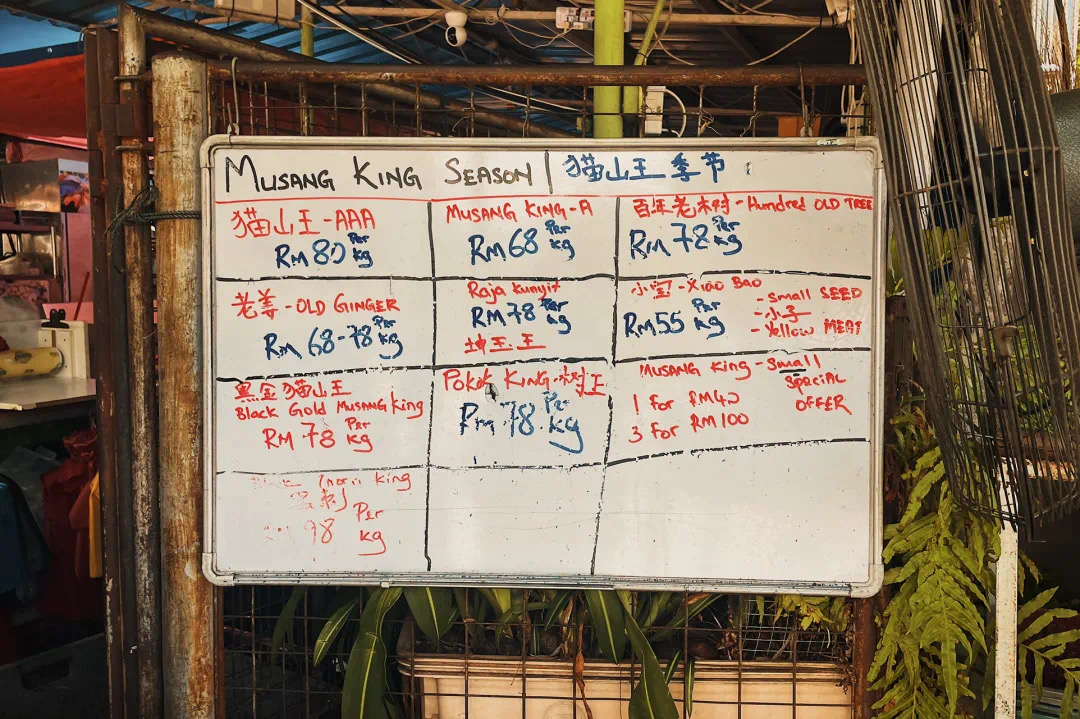 MUSANG KING SEASON | 猫山王季节
猫山王-AAA
RM 80 Per kg
MUSANG KING-A
RM 68 Per kg
百年老木树-Hundred OLD TREE
RM 78 Per kg
老姜-OLD GINGER
RM 68-78 Per kg
Raja Kunyit
RM 78 Per kg
坤王王
小宝-XIAO BAO
RM 55 Per kg
-Small SEED
-小子
-Yellow MEAT
黑金猫山王
Black Gold MUSANG King
RM 78 Per kg
POKOK KING-树王
RM 78 Per kg
MUSANG King-Small
SPECIAL
OFFER
1 For RM40
3 For RM100
King
黑刺
98 Per
kg